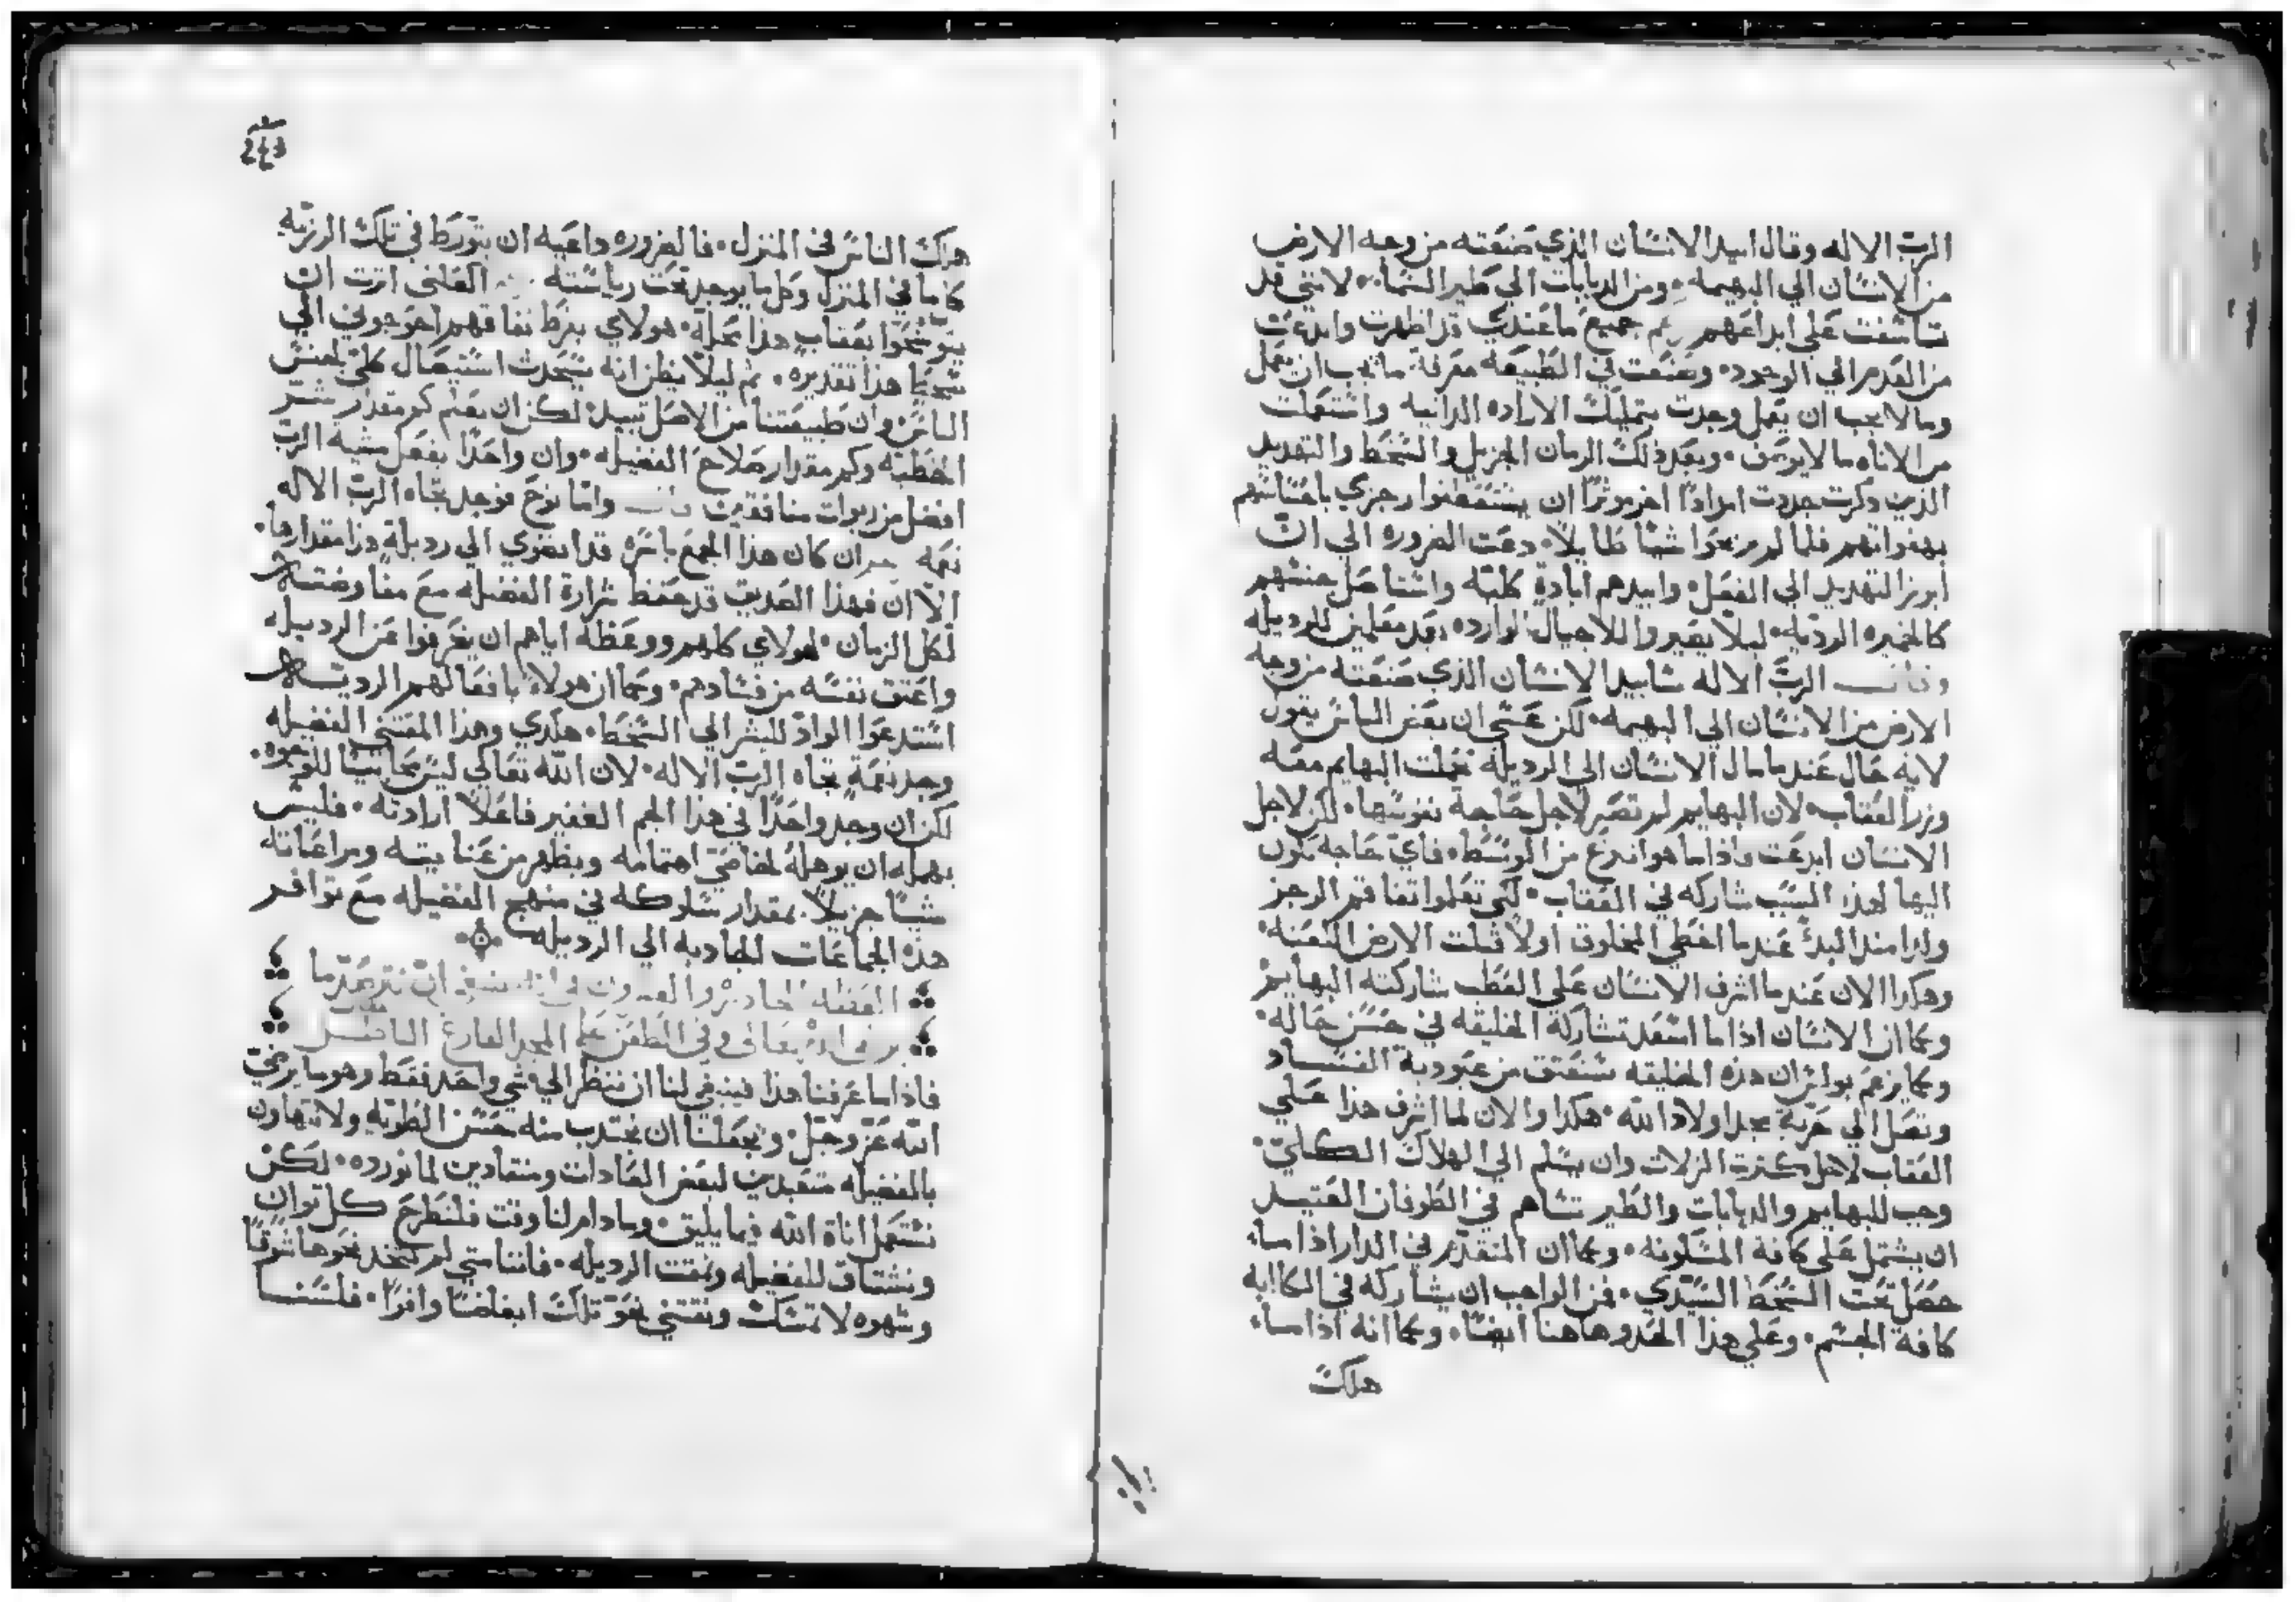 الربّ الاله وقال ابيد الانسان الذي صنعته من وجه الارض
من الانسان الي البهيمه ومن الدبابات الي طير السما لانني قد
تاسفت علي ابداعهم جميع ما عندي قد اظهرت وابدعت
من العدم الي الوجود وصنعت في الطبيعه معرفة ما يجب ان يعمل
وما لا يجب ان يعمل وجدت بتمليك الاراده الذاتيه واستعملت
من الاناه ما لا يوصف وبعد ذلك الزمان الجزيل والسخط والتهديد
الذين ذكرت حددت امرادًا اخر موثرًا ان يستعطفوا رجزي باحساسهم
بهفواتهم فلما لم يربحوا شيا طايلاً دعت الضروره الي ان
ابرز التهديد الي الفعل وابيدهم ابادة كليّه واستاصل جنسهم
كالخميره الرديّه ليلا يصيروا للاجيال الوارده بعد معلمين للرديله
وقال الربّ الاله سابيد الانسان الذي صنعته من وجه
الارض من الانسان الي البهيمه لكن عسي ان بعض الناس يقول
لايه حال عندما مال الانسان الي الرديله تحملت البهايم معه
وزر العقاب لان البهايم لم تصير لاجل حاجة نفوسها لكن لاجل
الانسان ابدعت واذا ما هو انتزع من الوسط فايّ حاجه تكون
اليها لهذا السبب شاركه في العقاب لكي تعلموا تفاقم الرجز
ولذا منذ البدءُ عندما اخطي المخلوق اولاً قبلت الارض اللعنه
وهكذا الان عندما اشرف الانسان علي العطب شاركته البهايم
وكما ان الانسان اذا ما استعد تشاركه الخليقه في حسن حاله
وكما يزعم بولس ان هذه الخليقه ستعتق من عبودية الفساد
وتصل الي حرية مجد اولاد الله هكذا والان لما اشرف هذا علي
العقاب لاجل كثرت الزلات وان يسلم الي الهلاك الكلي
وجب للبهايم والدبابات والطير تساهم في الطوفان العتيد
ان يشتمل علي كافة المسكونه وكما ان المتقدم في الدار اذا ما
حصل تحت السخط السيّدي فمن الواجب ان يشاركه في الكاابه
كافة الحشم وعلي هذا الحدو هاهنا ايضًا وكما انه اذا ما
هلك
هلك الناس في المنزل فالضروره داعيه ان يتورط في تلك الرزيّه
كلما في المنزل وكل ما يوجد تحت رياسته اترت ان
يتوشحوا بعقاب هذا محله هولاي بفرط نفاقهم احوجوني الي
سخط هذا تقديره ليلا يظن انه يحدث استيصال كليّ لجنس
الناس وان طبيعتنا من الاصل تبيد لكن ان يعلم كم مقدار شر
الخطيّه وكم مقدار صلاح الفضيله وان واحدًا يفعل مشية الربّ
افضل من ربوات منافقين وامّا نوح فوجد تجاه الربّ الاله
نعمه ان كان هذا الجمع باسره قد انغزي الي رديلة هذا مقدارها
الا ان فهذا الصديق قد حفظ شرارة الفضيله مع مفاوضته
لكل الزمان لهولاي كلهم ووعظه اياهم ان ينحرفوا عن الرديله
واعتق نفسه من فسادهم وكما ان هولاء بافعالهم الرديه
استدعوا الوادّ للبشر الي السخط هكذي وهذا المقتني الفضيله
وجد نعمة تجاه الربّ الاله لان الله تعالي ليس محابيًا للوجوه
لكن ان وجد واحدًا في هذا الجم الغفير فاعلاً ارادته فليس
يهمله ان يوهله لخاصيّ اهتمامه ويظهر من عنايته ومراعاته
شيًا جزيلاً بمقدار سلوكه في منهج الفضيله مع توافر
هذه الجماعات الجادبه الي الرديله
العظه الحاديه والعشرون في انه ينبغي ان نترصد ما
يرضي الله تعالي وفي الطعن علي المجد الفارغ الباطل
فاذا ما عرفنا هذا فينبغي لنا ان ننظر الي شي واحد فقط وهو ما يرضي
الله عزّ وجلّ ويجعلنا ان نجتدب منه حسن الطويّه ولا نتهاون
بالفضيله متعبدين لبعض العادات ومنقادين لما نورده لكن
نستعمل اناة الله فيما يليق وما دام لنا وقت فلنطرح كل توان
ونشتاق للفضيله ونمقت الرديله فاننا متي لم نتخد نحوها شوقًا
وشهوه لا تمسك ونقتني نحو تلك ابغاضًا وافرًا فلسنا